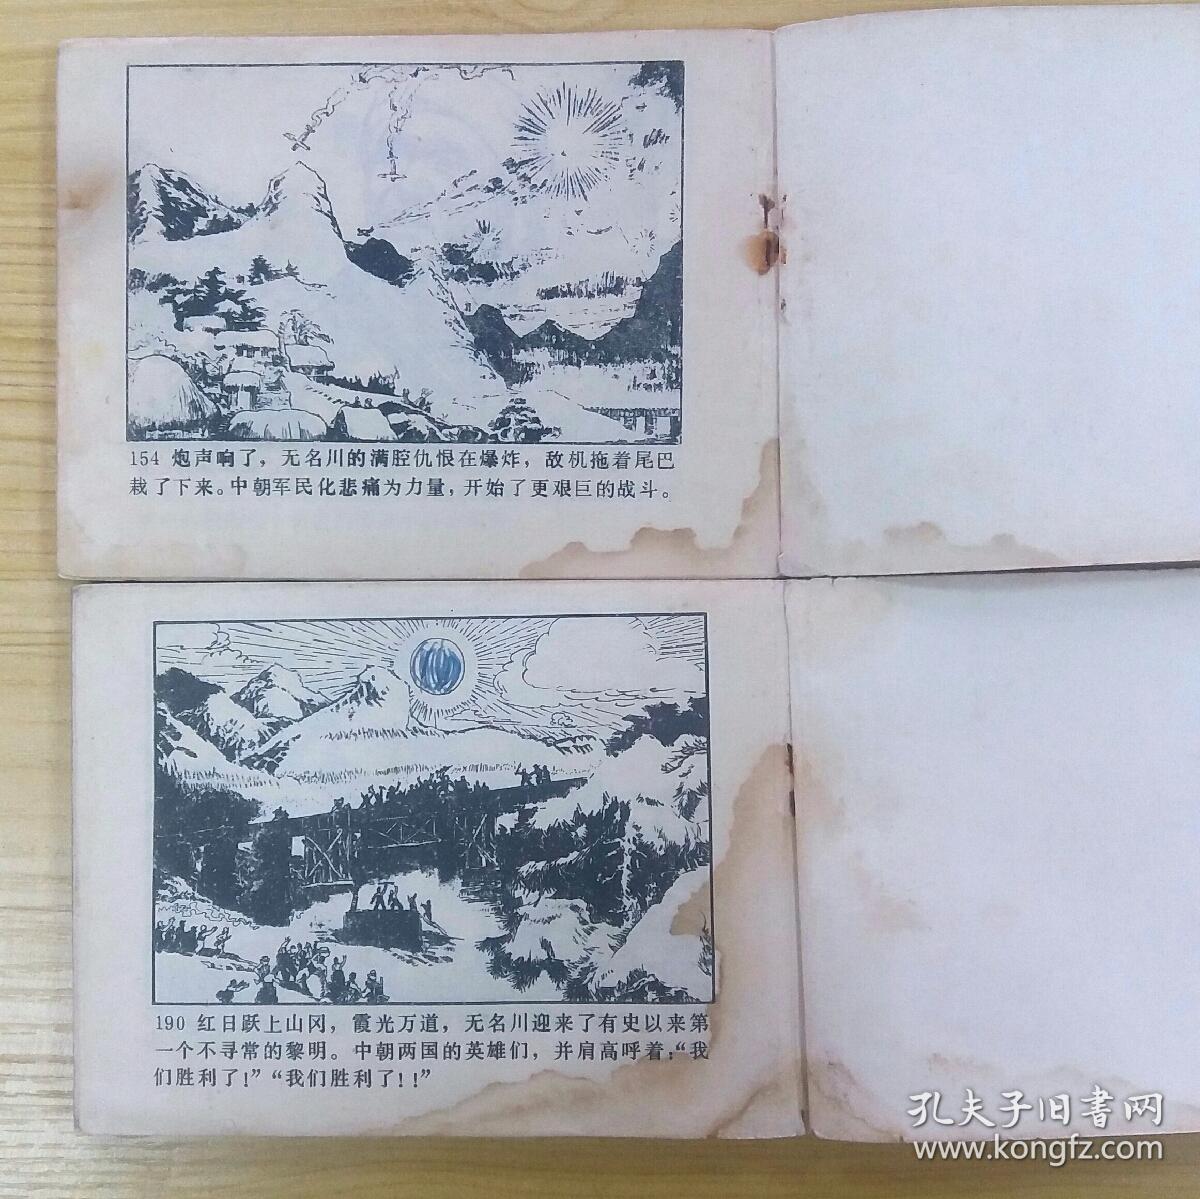 154 炮声响了，无名川的满腔仇恨在爆炸，敌机拖着尾巴
栽了下来。中朝军民化悲痛为力量，开始了更艰巨的战斗。
190 红日跃上山冈，霞光万道，无名川迎来了有史以来第
一个不寻常的黎明。中朝两国的英雄们，并肩高呼着：“我
们胜利了！”“我们胜利了！！”
孔夫子旧書网
www.kongfz.com